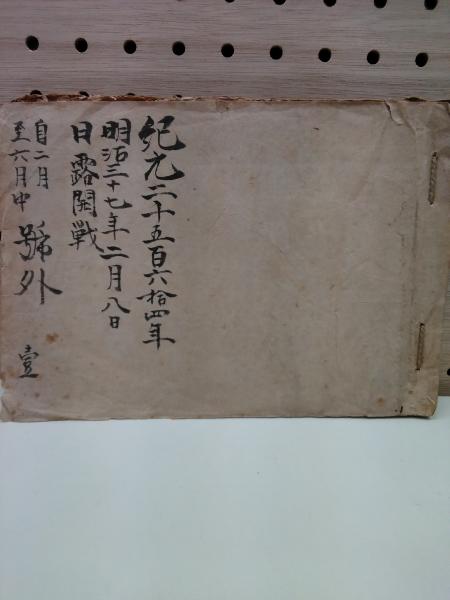 紀元二千五百六拾四年
明治三十七年二月八日
日露開戦
自二月
至六月中
號外
壹